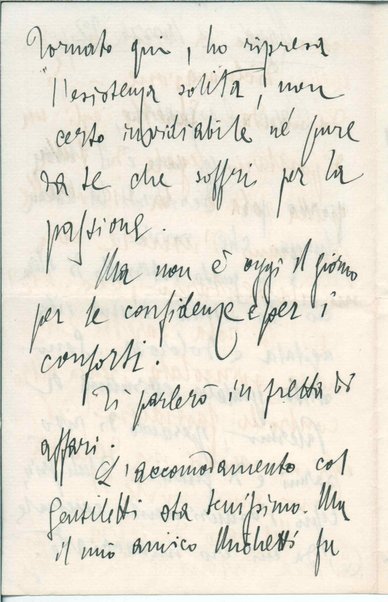 Tornato qui, ho ripresa
l'esistenza solita, non
certo invidiabile né pure
da te che soffri per la
passione.
Ma non è oggi il giorno
per le confidenze e per i
conforti.
Ti parlerò in fretta di
affari.
L'accomodamento col
Gentiletti sta benissimo. Ma
il mio amico Michetti fu